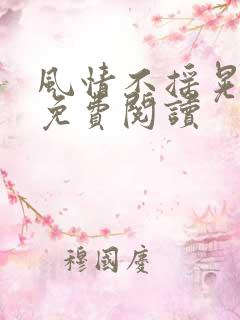 風情不搖晃
免費閱讀
穆國慶